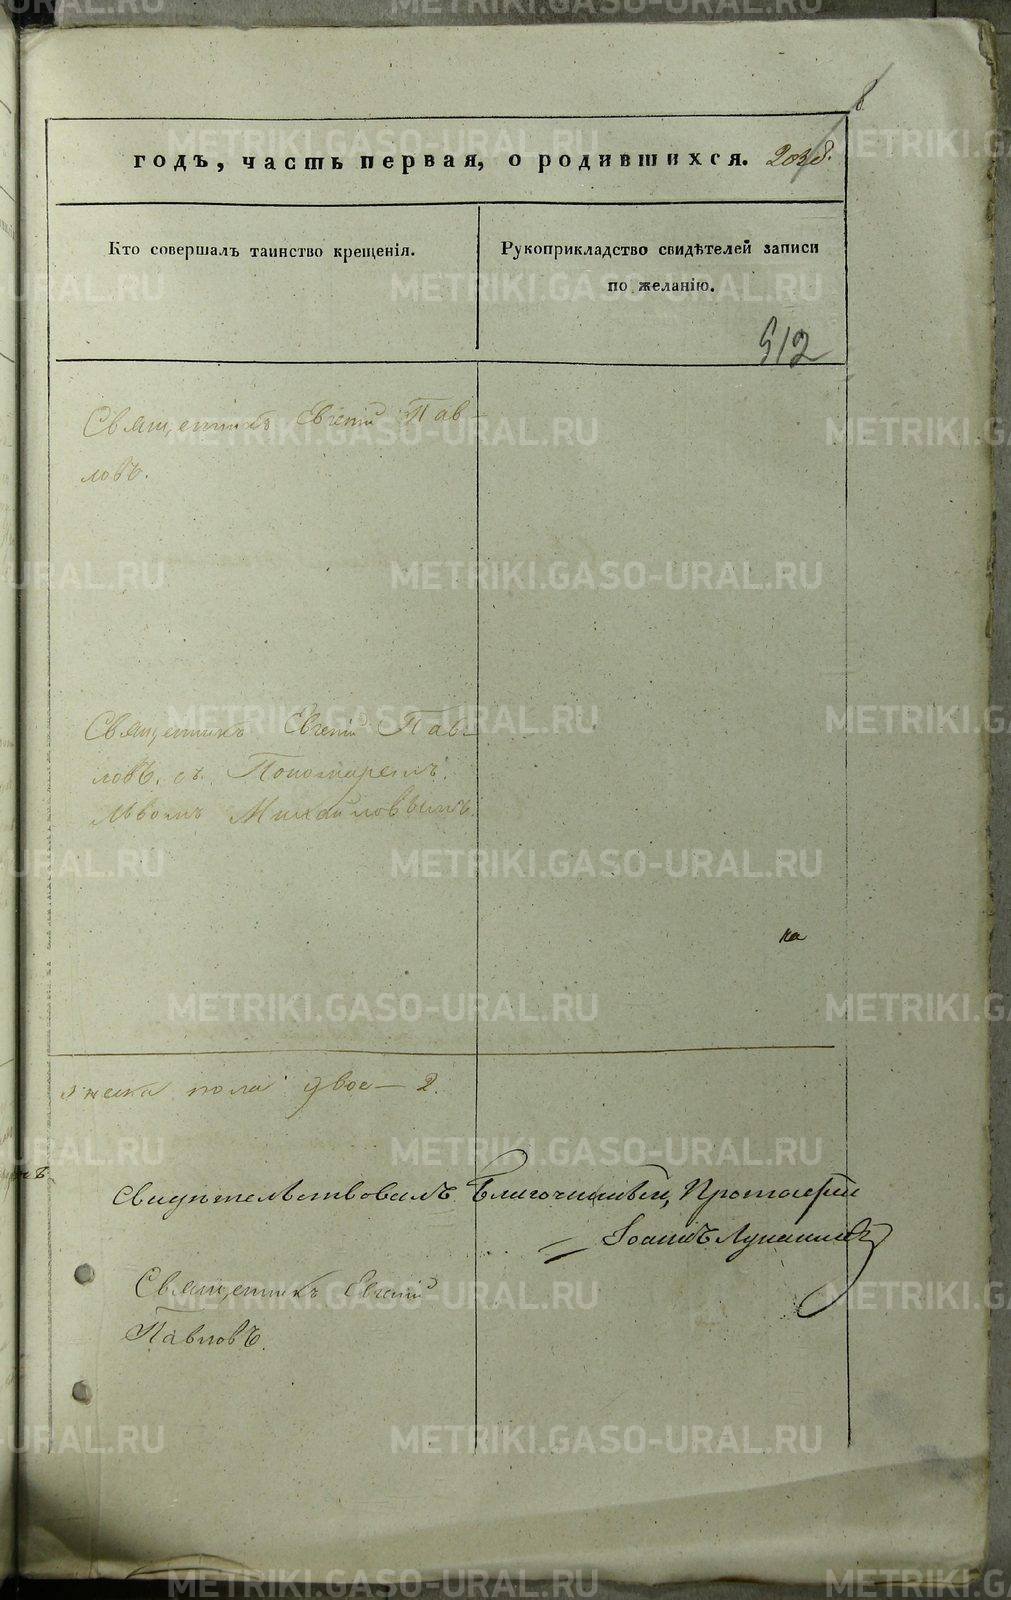 8
годъ, часть первая, о родившихся.
Кто совершалъ таинство крещенія.
Рукоприкладство свидѣтелей записи
по желанію.
512
Священникъ Евгеній Пав-
ловъ.
Священникъ Евгеній Пав-
ловъ, съ Пономаремъ
Львомъ Михайловымъ.
женска пола двое — 2.
Свидѣтельствовалъ Благочинный, Протоіерей
Іоаннъ Луканинъ
Священникъ Евгеній
Павловъ.
METRIKI.GASO-URAL.RU